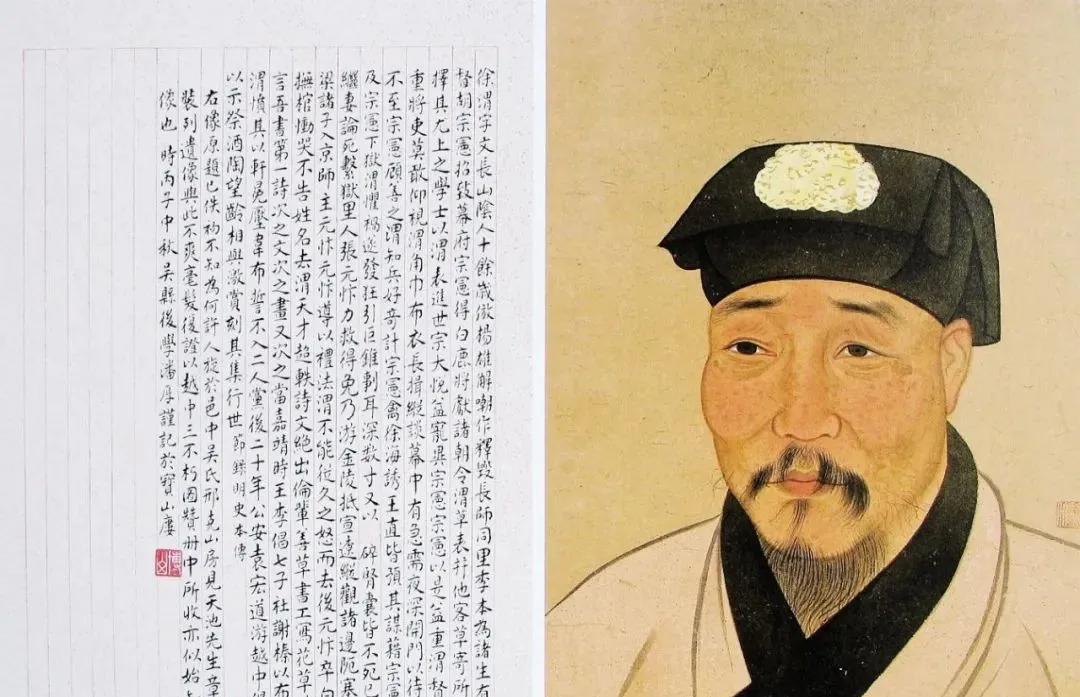 徐渭字文長山陰人十餘歲倣揚雄解嘲作釋毀長師同里季本為諸生有
督胡宗憲招致幕府宗憲得白鹿將獻諸朝令渭草表并他客草寄所
擇其尤上之學士以渭表進世宗大悅益寵異宗憲宗憲以是益重渭督
重將吏莫敢仰視渭角巾布衣長揖縱談幕中有急需夜深開門以待
不至宗憲顧善之渭知兵好奇計宗憲禽徐海誘王直皆預其謀藉宗憲
及宗憲下獄渭懼禍遂發狂引巨錐剚耳深数寸又以 碎腎囊皆不死已
繼妻論死繫獄里人張元忭力救得免乃游金陵抵宣遼縱觀諸邊阨塞
梁諸子入京師主元忭元忭導以禮法渭不能從久之怒而去後元忭卒白
撫棺慟哭不告姓名去渭天才超軼詩文絕出倫輩善草書工寫花草
言吾書第一詩次之文次之畫又次之當嘉靖時王李倡七子社謝榛以布
渭憤其以軒冕壓韋布誓不入二人黨後二十年公安袁宏道游越中得
以示祭酒陶望齡相與激賞刻其集行世 節錄明史本傳
右像原題已佚初不知為何許人旋於邑中吳氏邢克山房見天池先生章
裝列遺像與此不爽毫髮後證以越中三不朽圖贊冊中所收亦似始
像也 時丙子中秋吳縣後學潘厚謹記於寶山廔
博山